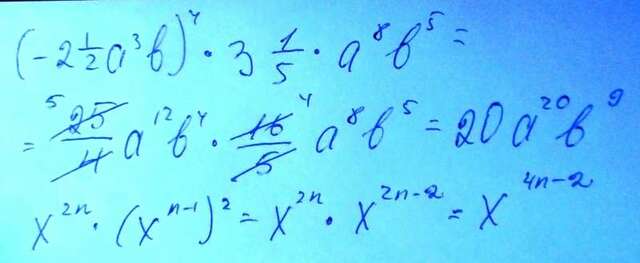 (-2 1/2 a³b)⁴ · 3 1/5 · a⁸b⁵ =
= ⁵25/4 a¹²b⁴ · 16⁴/5 a⁸b⁵ = 20a²⁰b⁹
x²ⁿ · (xⁿ⁻¹)² = x²ⁿ · x²ⁿ⁻² = x⁴ⁿ⁻²